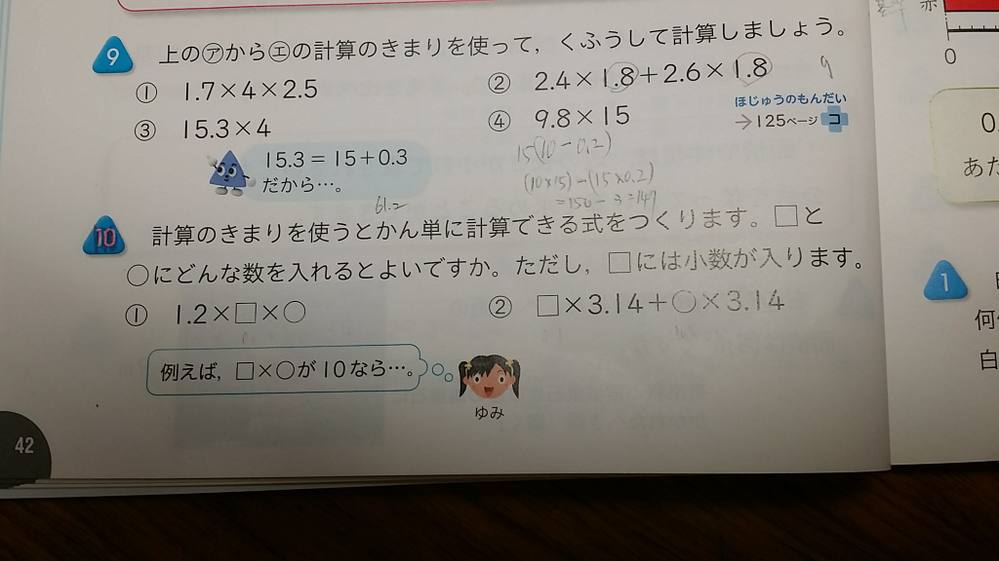 9 上の㋐から㋓の計算のきまりを使って，くふうして計算しましょう。
① 1.7×4×2.5
② 2.4×1.8＋2.6×1.8
9
③ 15.3×4
④ 9.8×15
ほじゅうのもんだい
→125ページ コ
15.3＝15＋0.3
だから…。
61.2
15(10−0.2)
(10×15)−(15×0.2)
=150−3=147
10 計算のきまりを使うとかん単に計算できる式をつくります。□と
○にどんな数を入れるとよいですか。ただし，□には小数が入ります。
① 1.2×□×○
② □×3.14＋○×3.14
例えば，□×○が10なら…。
ゆみ
42
赤
0
0
あた
1
何
白